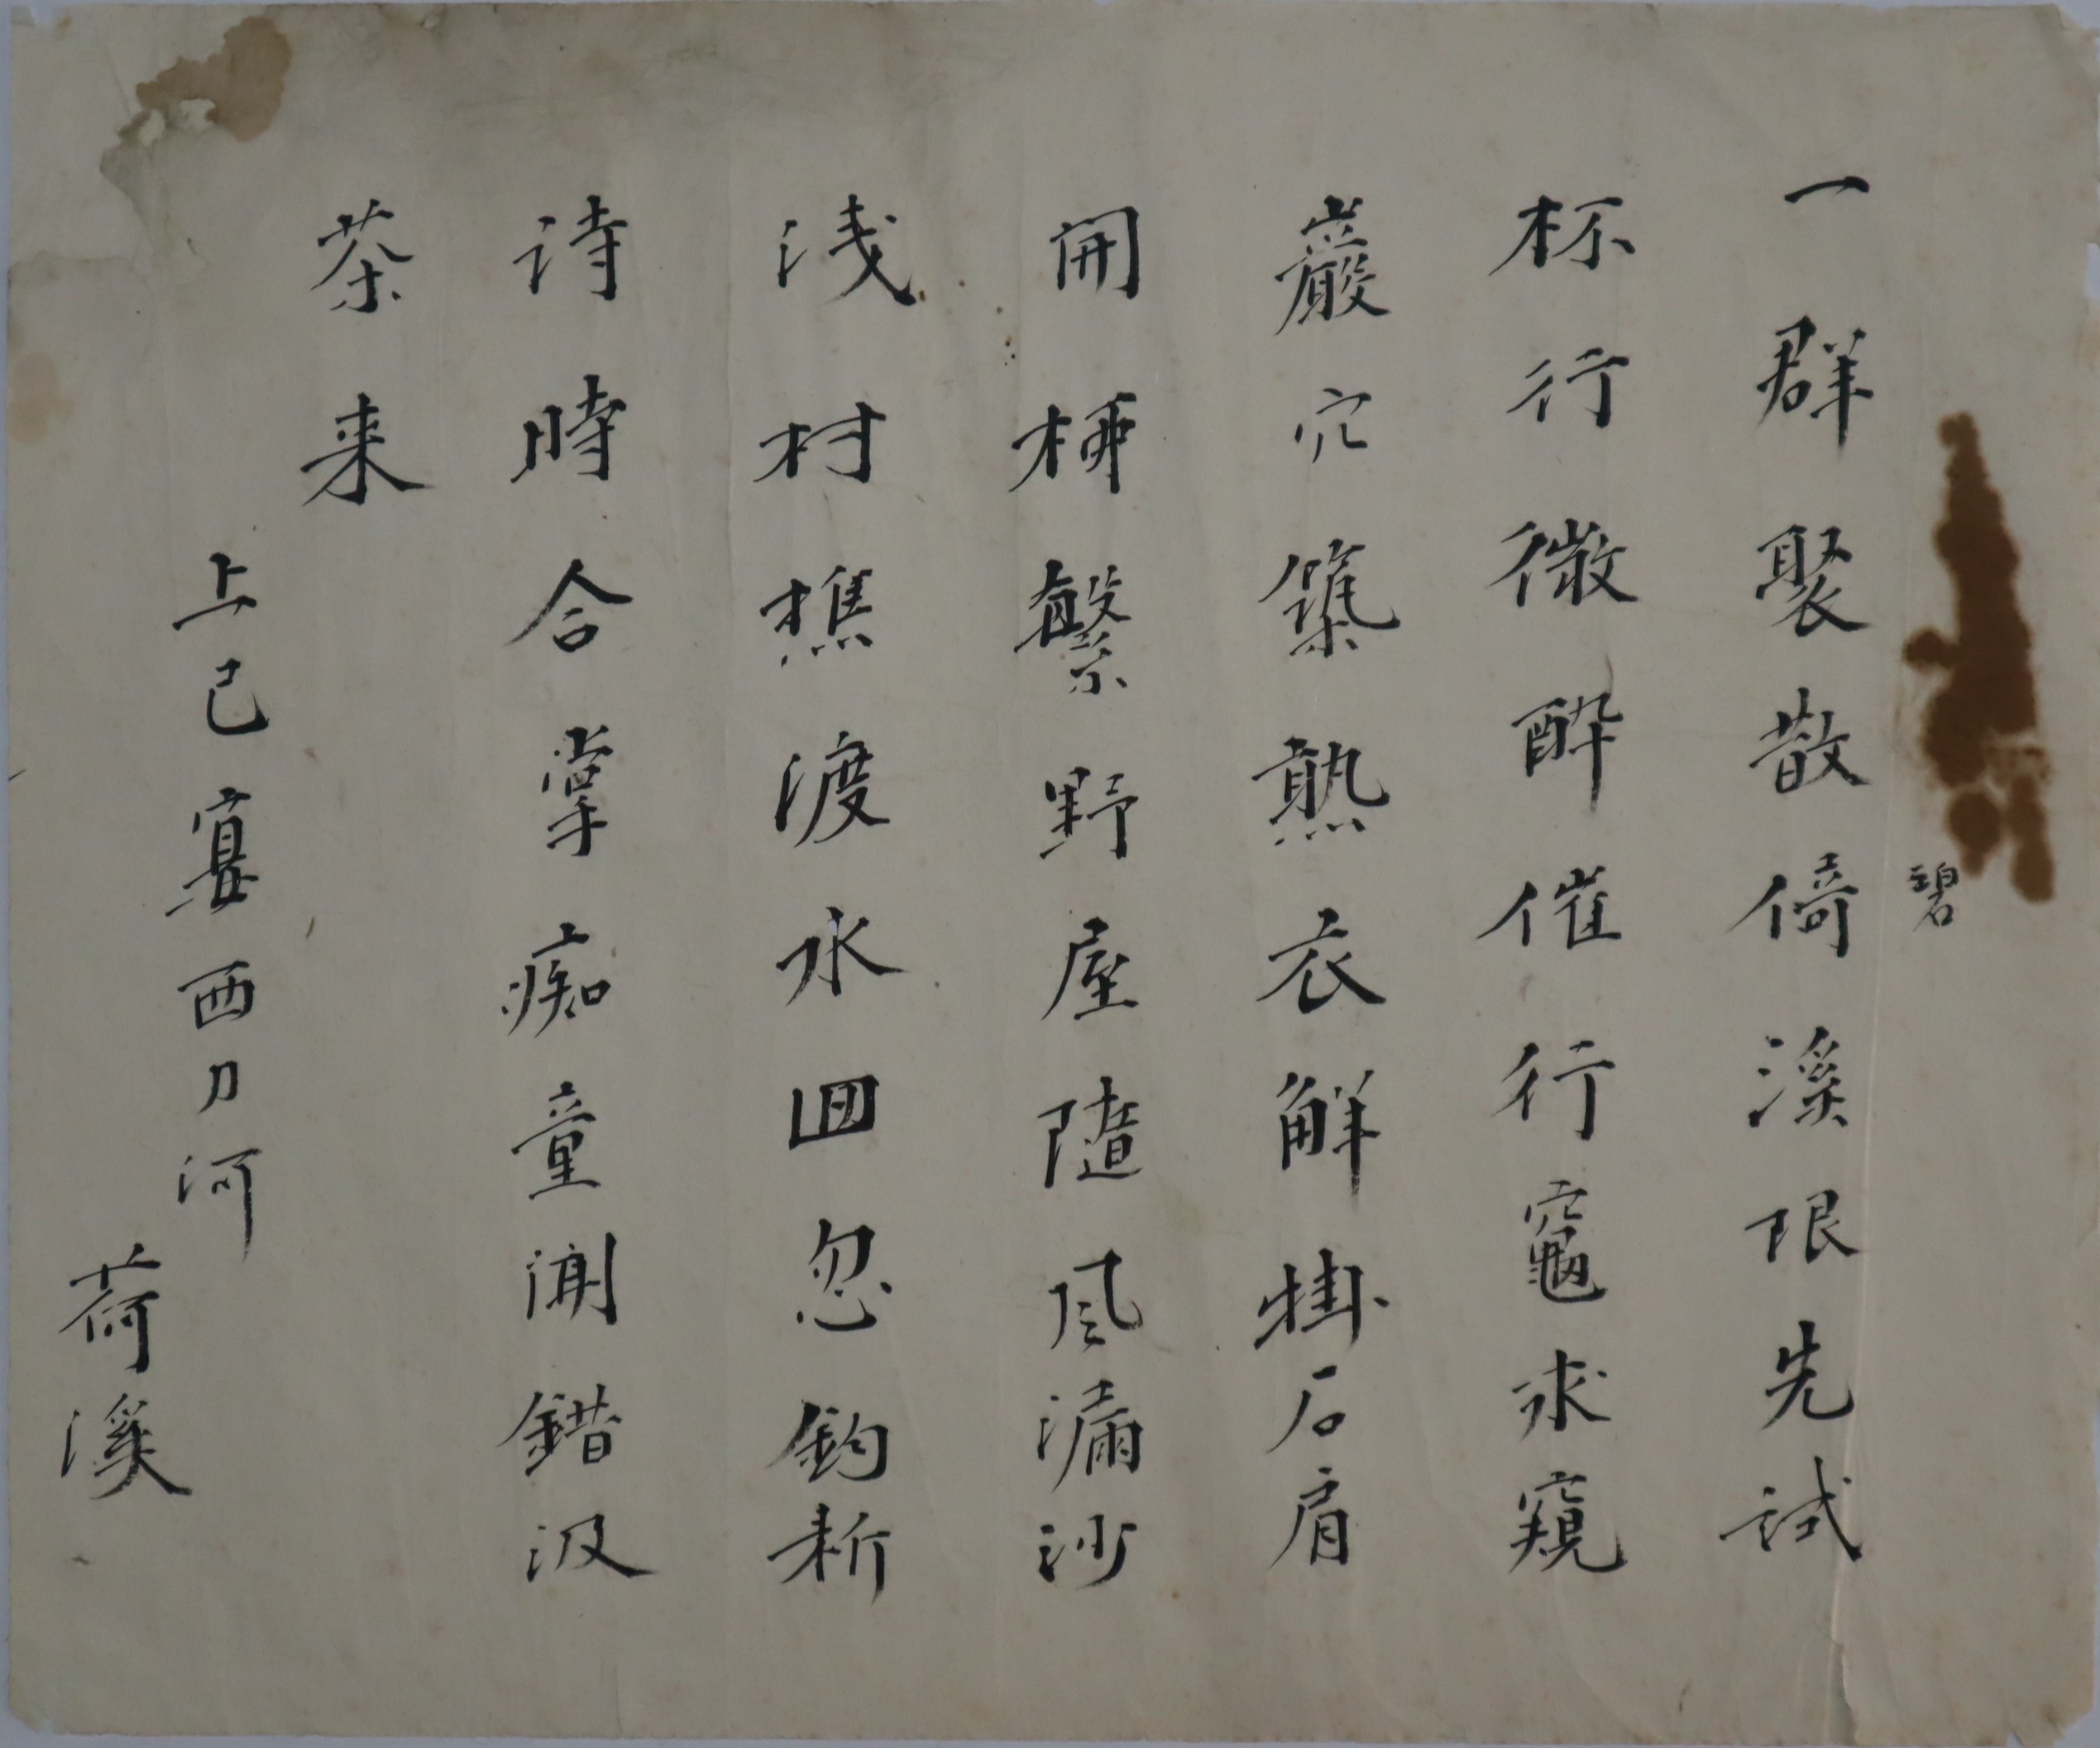 一群聚散倚碧溪限先試
杯行微酔催行竈求窺
巖穴築熱衣觧掛石肩
開梻繫野屋隨風漏沙
浅村樵渡水回忽鈎新
诗時合掌痴童閒錯汲
茶来
上巳宴西刀河
荷溪